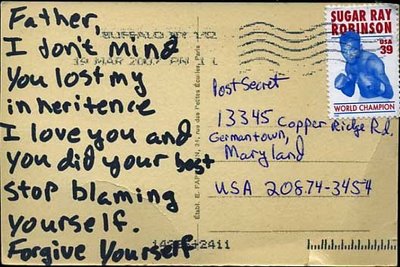 Father,
I don't mind
You lost my
inheritence
I love you and
you did your best
stop blaming
yourself.
Forgive Yourself
BUFFALO NY 142
19 MAR 2007 PM 1 L
SUGAR RAY
ROBINSON
USA
39
WORLD CHAMPION
PostSecret
13345 Copper Ridge Rd.
Germantown,
Maryland
USA 20874-3454
2411